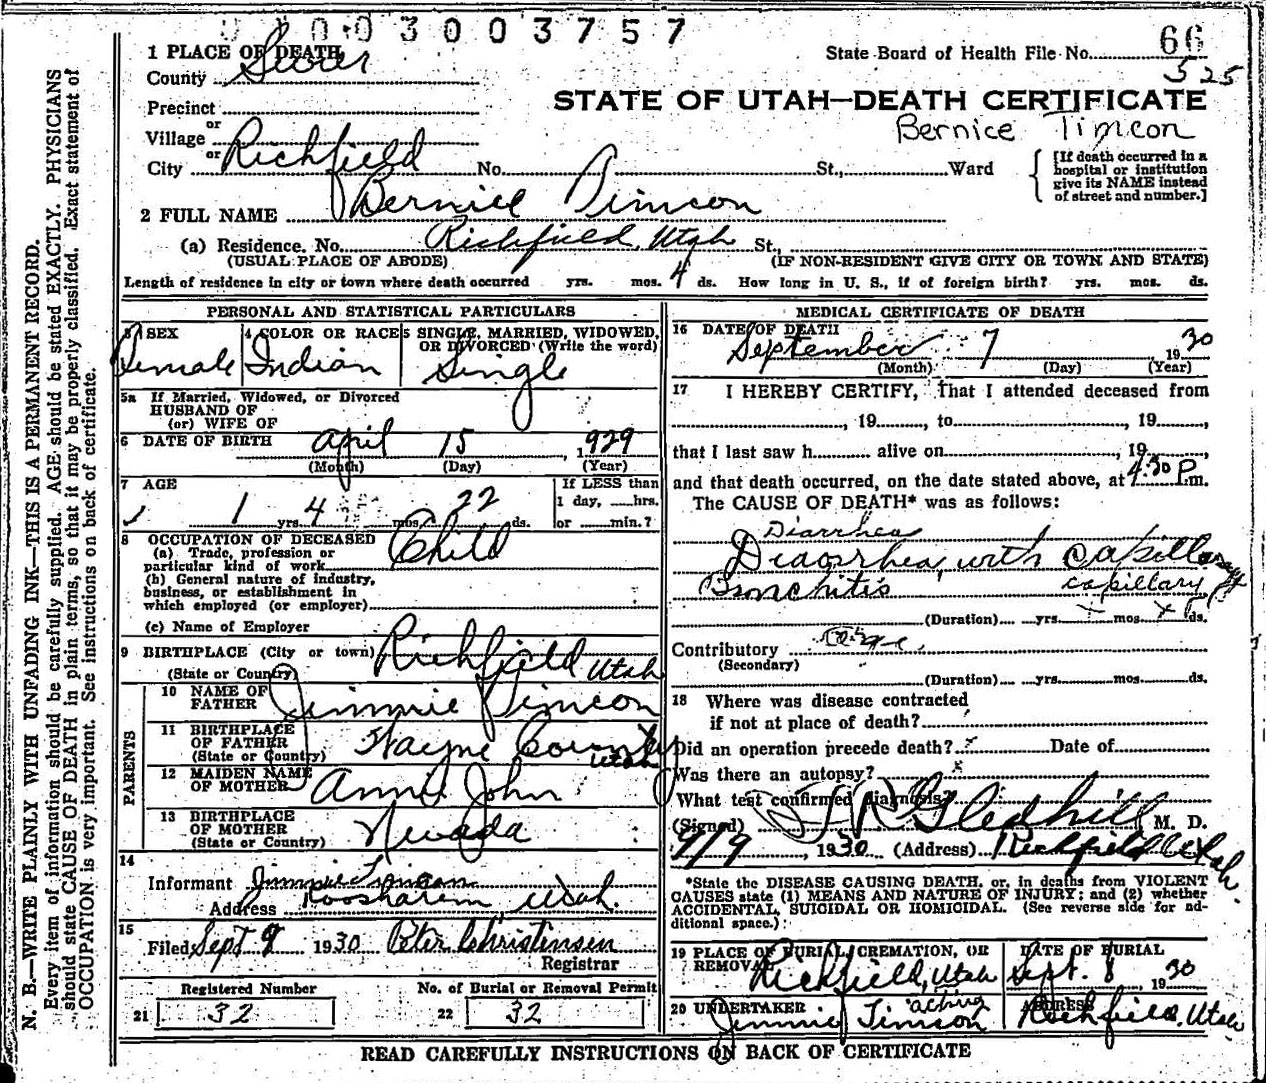 003003757
1 PLACE OF DEATH
County Sevier
State Board of Health File No. 66
525
Precinct
or
Village
or
City Richfield No. St., Ward
STATE OF UTAH—DEATH CERTIFICATE
Bernice Timcon
[If death occurred in a hospital or institution give its NAME instead of street and number.]
2 FULL NAME Bernice Timcon
(a) Residence. No. Richfield, Utah St.,
(USUAL PLACE OF ABODE) (IF NON-RESIDENT GIVE CITY OR TOWN AND STATE)
Length of residence in city or town where death occurred yrs. mos. 4 ds. How long in U. S., if of foreign birth? yrs. mos. ds.
PERSONAL AND STATISTICAL PARTICULARS
3 SEX Female
4 COLOR OR RACE Indian
5 SINGLE, MARRIED, WIDOWED, OR DIVORCED (Write the word) Single
5a If Married, Widowed, or Divorced
HUSBAND OF
(or) WIFE OF
6 DATE OF BIRTH April 15, 1929
(Month) (Day) (Year)
7 AGE
1 yrs. 4 mos. 22 ds.
If LESS than
1 day, hrs.
or min.?
8 OCCUPATION OF DECEASED
(a) Trade, profession or
particular kind of work Child
(b) General nature of industry,
business, or establishment in
which employed (or employer)
(c) Name of Employer
9 BIRTHPLACE (City or town) Richfield
(State or Country) Utah
PARENTS
10 NAME OF FATHER Jimmie Timcon
11 BIRTHPLACE OF FATHER (State or Country) Wayne County Utah
12 MAIDEN NAME OF MOTHER Annie John
13 BIRTHPLACE OF MOTHER (State or Country) Nevada
14
Informant Jimmie Timcon
Address Koosharem Utah.
15
Filed Sept 9 1930 Peter Christensen
Registrar
Registered Number
21 32
No. of Burial or Removal Permit
22 32
MEDICAL CERTIFICATE OF DEATH
16 DATE OF DEATH
September 7 1930
(Month) (Day) (Year)
17 I HEREBY CERTIFY, That I attended deceased from
, 19 , to , 19 ,
that I last saw h alive on , 19 ,
and that death occurred, on the date stated above, at 4:30 P.m.
The CAUSE OF DEATH* was as follows:
Diarrhea
Diaorrhea, with capillary
Bronchitis capillary
(Duration) yrs. mos. ds.
Contributory
(Secondary)
(Duration) yrs. mos. ds.
18 Where was disease contracted
if not at place of death?
Did an operation precede death? Date of
Was there an autopsy?
What test confirmed diagnosis?
(Signed) Gledhill M. D.
9/9, 1930 (Address) Richfield Utah.
*State the DISEASE CAUSING DEATH, or, in deaths from VIOLENT
CAUSES state (1) MEANS AND NATURE OF INJURY; and (2) whether
ACCIDENTAL, SUICIDAL OR HOMICIDAL. (See reverse side for ad-
ditional space.)
19 PLACE OF BURIAL, CREMATION, OR REMOVAL Richfield, Utah
DATE OF BURIAL Sept. 8, 1930
20 UNDERTAKER acting
Jimmie Timcon
ADDRESS Richfield, Utah
READ CAREFULLY INSTRUCTIONS ON BACK OF CERTIFICATE
N. B.—WRITE PLAINLY WITH UNFADING INK—THIS IS A PERMANENT RECORD.
Every item of information should be carefully supplied. AGE should be stated EXACTLY. PHYSICIANS
should state CAUSE OF DEATH in plain terms, so that it may be properly classified. Exact statement of
OCCUPATION is very important. See instructions on back of certificate.